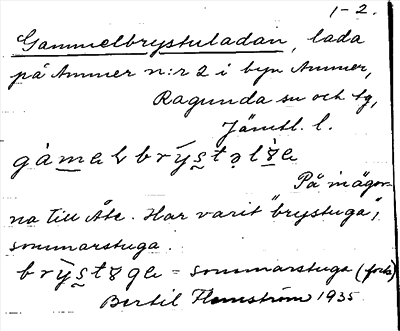 1-2.
Gammelbrystuladan, lada
på Ammer n:r 2 i byn Ammer,
Ragunda sn och tg,
Jämtl. l.
På inägor-
na till Åte. Har varit "brystuga",
sommarstuga.
= sommarstuga (forts)
Bertil Flemström 1935.